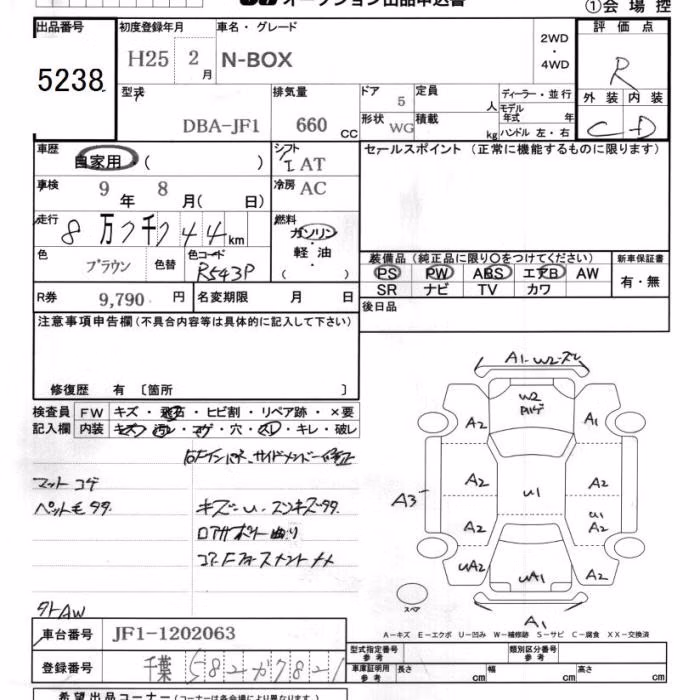 オークション出品申込書
①会場控
出品番号
初度登録年月
車名・グレード
2WD
・
4WD
評価点
5238
H25
2
月
N-BOX
R
型式
排気量
ドア
定員
ディーラー・並行
外装
内装
DBA-JF1
660
CC
5
人
モデル年式
年
C
D
形状
WG
積載
kg
ハンドル 左・右
車歴
自家用
(
)
シフト
I AT
セールスポイント(正常に機能するものに限ります)
車検
9
年
8
月(
日)
冷房
AC
走行
8万7千744km
燃料
ガソリン
・
軽油
(
)
色
ブラウン
色替
色コード
R543P
装備品(純正品に限り〇をつけてください)
新車保証書
PS
PW
ABS
エアB
AW
有・無
SR
ナビ
TV
カワ
R券
9,790
円
名変期限
月
日
後日品
注意事項申告欄(不具合内容等は具体的に記入して下さい)
修復歴
有
〔箇所
〕
検査員
FW
キズ・飛石・ヒビ割・リペア跡・×要
記入欄
内装
キズ・汚レ・コゲ・穴・スレ・キレ・破レ
マットコゲ
ペット毛タタ
キズ=U・スンキズタタ.
A1-W2-ズレ
W2
A2
A1
A2
A2
A3
U1
A2
U1
A2
UA2
UA1
A2
スペア
A1
タトAW
A-キズ E-エクボ U-凹み W-補修跡 S-サビ C-腐食 XX-交換済
車台番号
JF1-1202063
型式指定番号
参考
類別区分番号
参考
登録番号
千葉582か782-1
車庫証明用
参考
長さ
cm
幅
cm
高さ
cm
希望出品コーナー(コーナーは各会場により異なります。)